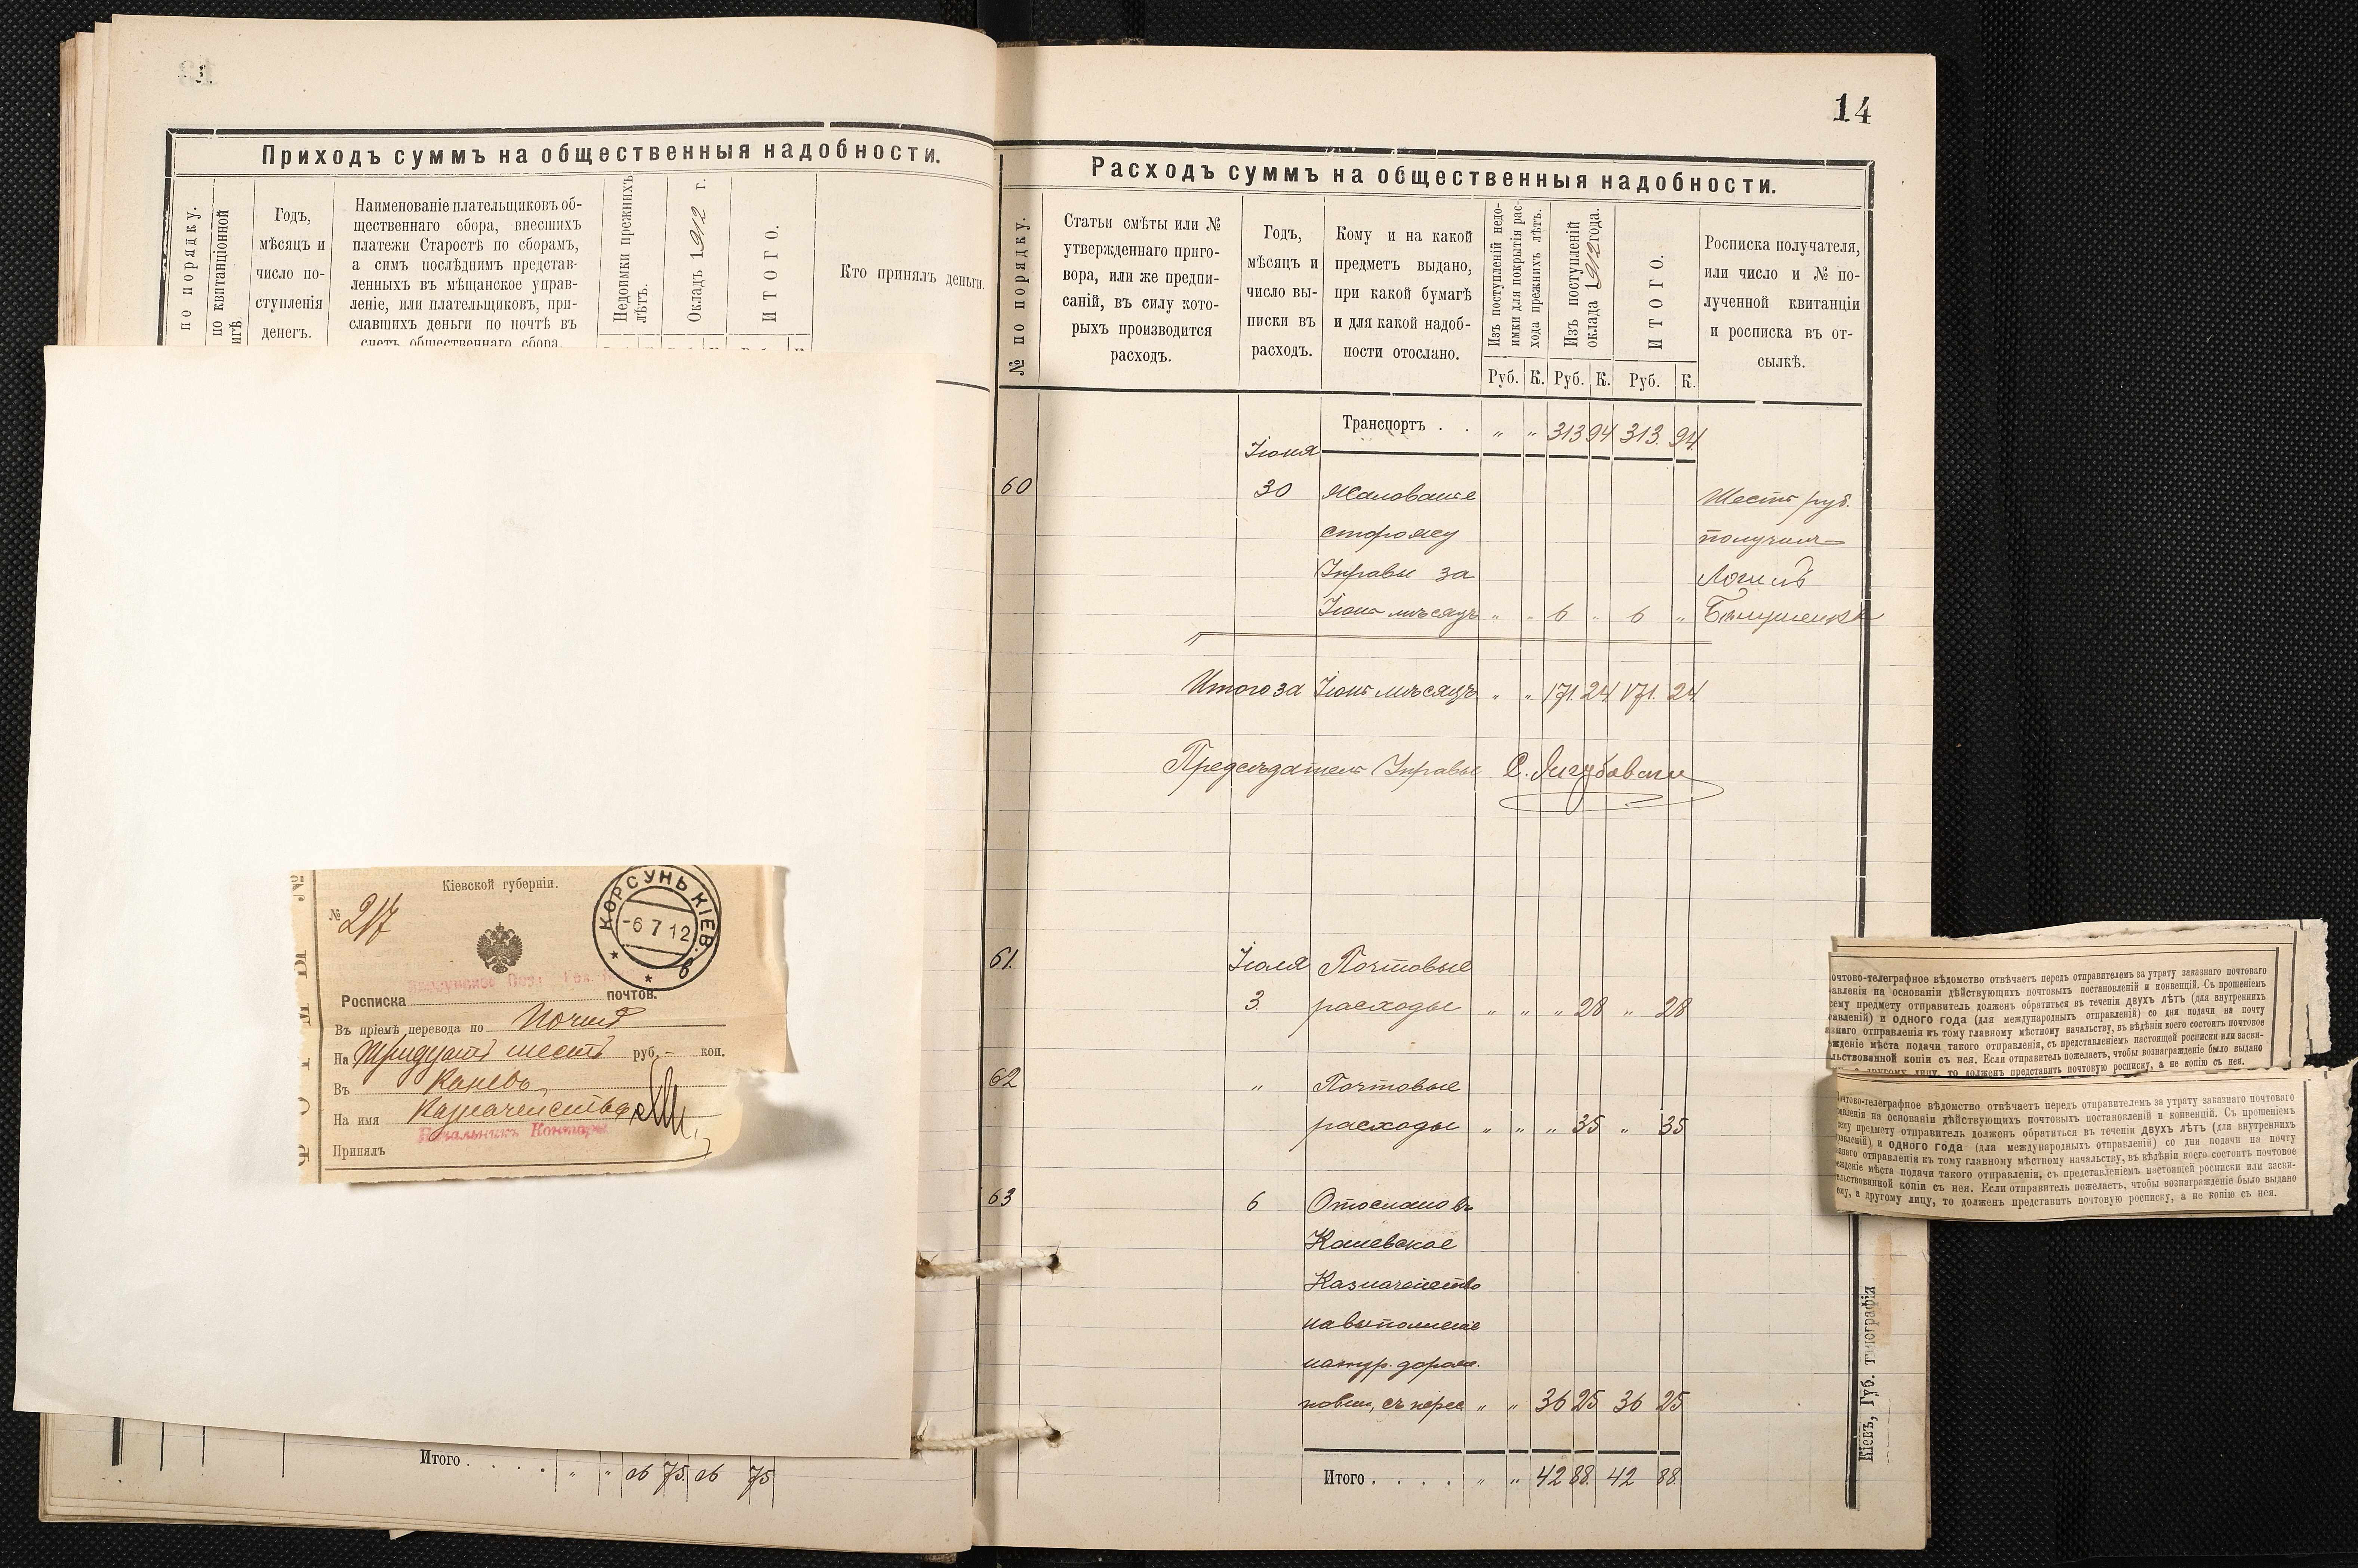 Приходъ суммъ на общественныя надобности.
по порядку.
по квитанціонной
Годъ,
мѣсяцъ и
число по-
ступленія
денегъ.
Наименованіе плательщиковъ об-
щественнаго сбора, внесшихъ
платежи Старостѣ по сборамъ,
а симъ послѣднимъ представ-
ленныхъ въ мѣщанское управ-
леніе, или плательщиковъ, при-
славшихъ деньги по почтѣ въ
счетъ общественнаго сбора.
Недоимки прежнихъ
лѣтъ.
Окладъ 1912 г.
ИТОГО.
Кто принялъ деньги.
Кіевской губерніи.
№ 217
КОРСУНЬ КІЕВ.
-6 7 12
в
Росписка почтов.
Въ пріемѣ перевода по почтѣ
На Тридцать шесть руб. – коп.
Въ Каневъ
На имя Казначейства
Начальникъ Конторы
Принялъ
Итого . . . . " " 26 75 26 75
14
Расходъ суммъ на общественныя надобности.
№ по порядку.
Статьи смѣты или №
утвержденнаго приго-
вора, или же предпи-
саній, въ силу кото-
рыхъ производится
расходъ.
Годъ,
мѣсяцъ и
число вы-
писки въ
расходъ.
Кому и на какой
предметъ выдано,
при какой бумагѣ
и для какой надоб-
ности отослано.
Изъ поступленій недо-
имки для покрытія рас-
хода прежнихъ лѣтъ.
Изъ поступленій
оклада 1912 года.
ИТОГО.
Росписка получателя,
или число и № по-
лученной квитанціи
и росписка въ от-
сылкѣ.
Руб. К. Руб. К. Руб. К.
Транспортъ . . " " 313 94 313. 94.
Іюня
60 30 Жалованіе Шесть руб.
сторожу получилъ
Управы за Логинъ
Іюнь мѣсяцъ " " 6 " 6 "
Итого за Іюнь мѣсяцъ " " 171. 24 171. 24
Предсѣдатель Управы
61. Іюля Почтовые
3. расходы " " " 28 " 28
62 " Почтовые
расходы " " " 35 " 35
63 6 Отослано въ
Каневское
Казначейство
на выполненіе
натур. дорож.
повин, съ перес " " 36 25 36 25
Итого . . . . " " 42 88. 42 88.
очтово-телеграфное вѣдомство отвѣчаетъ передъ отправителемъ за утрату заказнаго почтоваго
авленія на основаніи дѣйствующихъ почтовыхъ постановленій и конвенцій. Съ прошеніемъ
сему предмету отправитель долженъ обратиться въ теченіи двухъ лѣтъ (для внутреннихъ
авленій) и одного года (для международныхъ отправленій) со дня подачи на почту
знаго отправленія къ тому главному мѣстному начальству, въ вѣдѣніи коего состоитъ почтовое
жденіе мѣста подачи такого отправленія, съ представленіемъ настоящей росписки или засви-
льствованной копіи съ нея. Если отправитель пожелаетъ, чтобы вознагражденіе было выдано
другому лицу, то долженъ представить почтовую росписку, а не копію съ нея.
очтово-телеграфное вѣдомство отвѣчаетъ передъ отправителемъ за утрату заказнаго почтоваго
авленія на основаніи дѣйствующихъ почтовыхъ постановленій и конвенцій. Съ прошеніемъ
сему предмету отправитель долженъ обратиться въ теченіи двухъ лѣтъ (для внутреннихъ
авленій) и одного года (для международныхъ отправленій) со дня подачи на почту
знаго отправленія къ тому главному мѣстному начальству, въ вѣдѣніи коего состоитъ почтовое
ежденіе мѣста подачи такого отправленія, съ представленіемъ настоящей росписки или засви-
ельствованной копіи съ нея. Если отправитель пожелаетъ, чтобы вознагражденіе было выдано
ему, а другому лицу, то долженъ представить почтовую росписку, а не копію съ нея.
Кіевъ, Губ. типографія